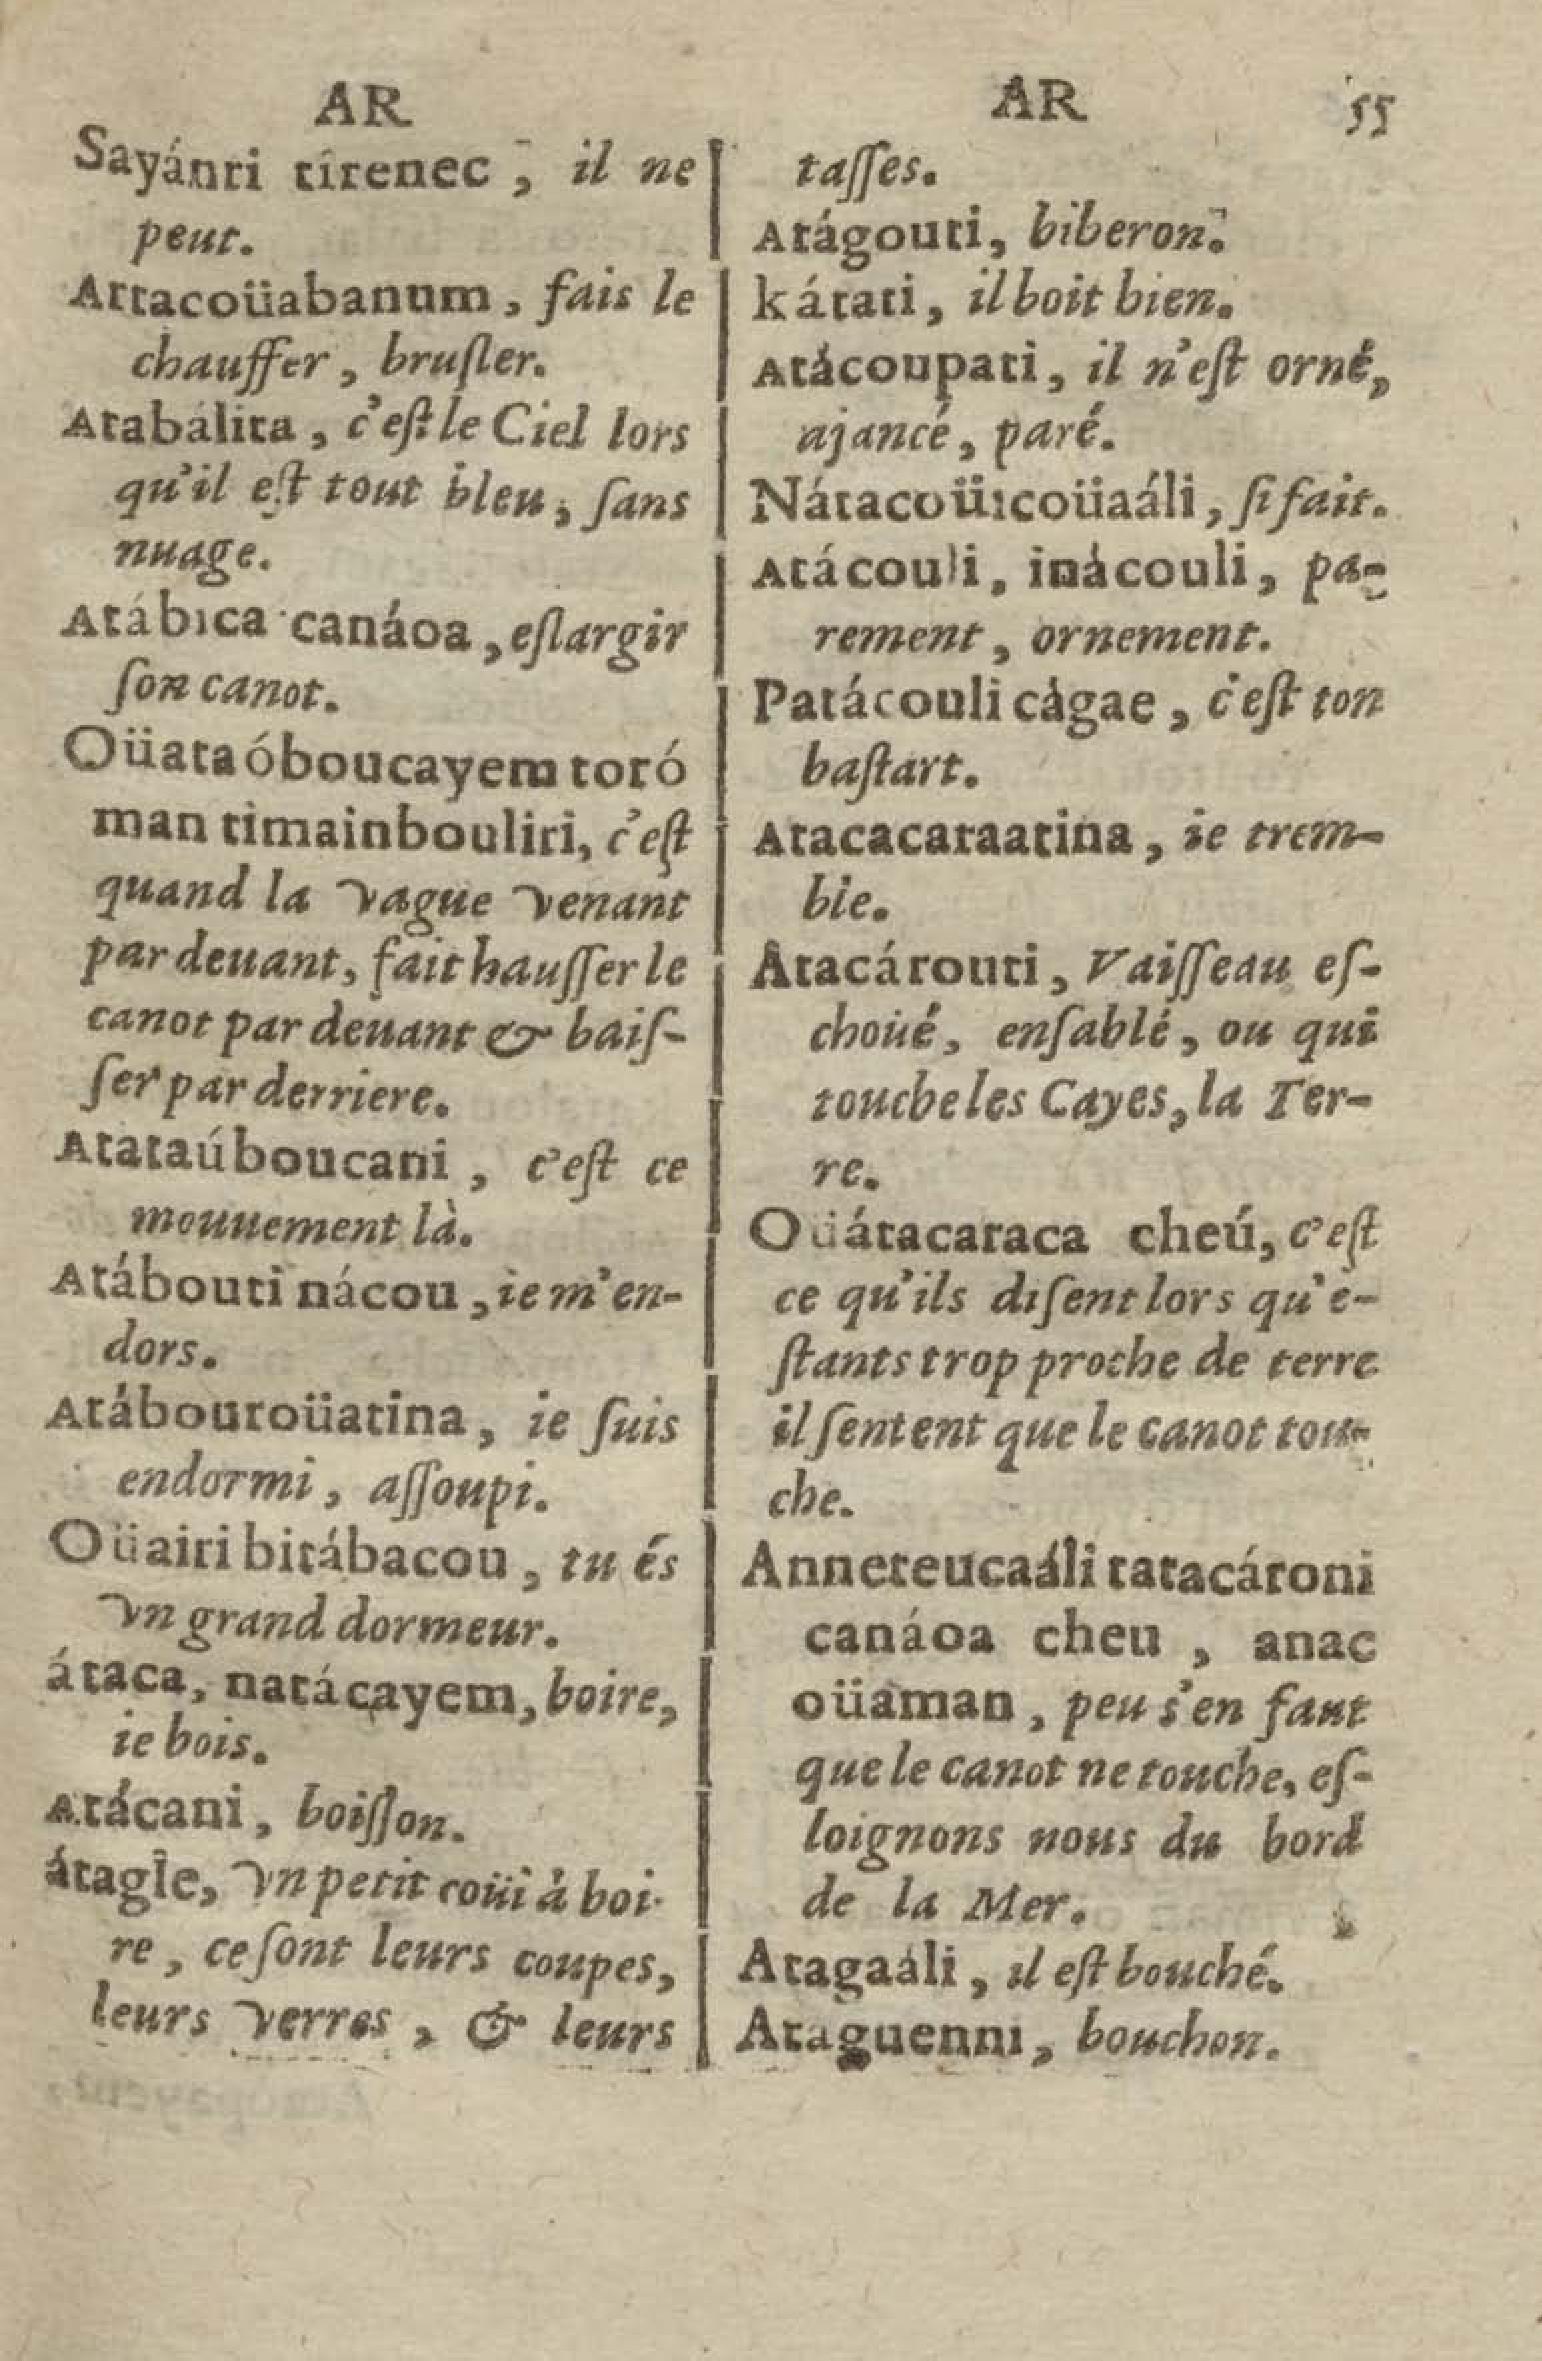 AR
Sayánti tírenec, il ne
peut.
Attacoüabanum, fais le
chauffer, bruſler.
Atabálita, c'eſt le Ciel lors
qu'il eſt tout bleu, ſans
nuage.
Atábica canáoa, eſlargir
ſon canot.
Oüata óboucayem toró
man timainbouliri, c'eſt
quand la vague venant
par deuant, fait hauſſer le
canot par deuant & baiſ-
ſer par derriere.
Atataúboucani, c'eſt ce
mouuement là.
Atábouti nácou, ie m'en-
dors.
Atábouroüatina, ie ſuis
endormi, aſſoupi.
Oüairi bitábacou, tu és
vn grand dormeur.
átaca, natácayem, boire,
ie bois.
Atácani, boiſſon.
átagle, vn petit coüi à boi-
re, ce ſont leurs coupes,
leurs verres, & leurs
AR 55
taſſes.
Atágouti, biberon.
kátati, il boit bien.
Atácoupati, il n'eſt orné,
ajancé, paré.
Nátacoüicoüaáli, ſi fait.
Atácouli, inácouli, pa-
rement, ornement.
Patácouli cágae, c'eſt ton
baſtart.
Atacacaraatina, ie trem-
ble.
Atacárouti, Vaiſſeau eſ-
choüé, enſablé, ou qui
touche les Cayes, la Ter-
re.
Oüátacaraca cheú, c'eſt
ce qu'ils diſent lors qu'e-
ſtants trop proche de terre
il ſentent que le canot tou-
che.
Anneteucaáli tatacároni
canáoa cheu, anac
oüaman, peu s'en faut
que le canot ne touche, eſ-
loignons nous du bord
de la Mer.
Atagaáli, il eſt bouché.
Ataguenni, bouchon.